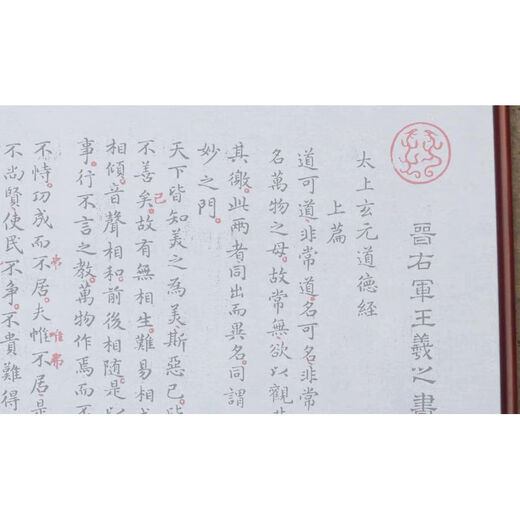 晉右軍王羲之書
太上玄元道德經
上篇
道可道。非常道。名可名。非常
名萬物之母。故常無。欲以觀
其徼。此兩者同出而異名。同謂
妙之門。
天下皆知美之為美。斯惡已。皆
已
不善矣。故有無相生。難易相
相傾。音聲相和。前後相隨。是以
事。行不言之教。萬物作焉而不
弗 唯 弗
不恃。功成而不居。夫惟不居。是
不尚賢。使民不爭。不貴難得